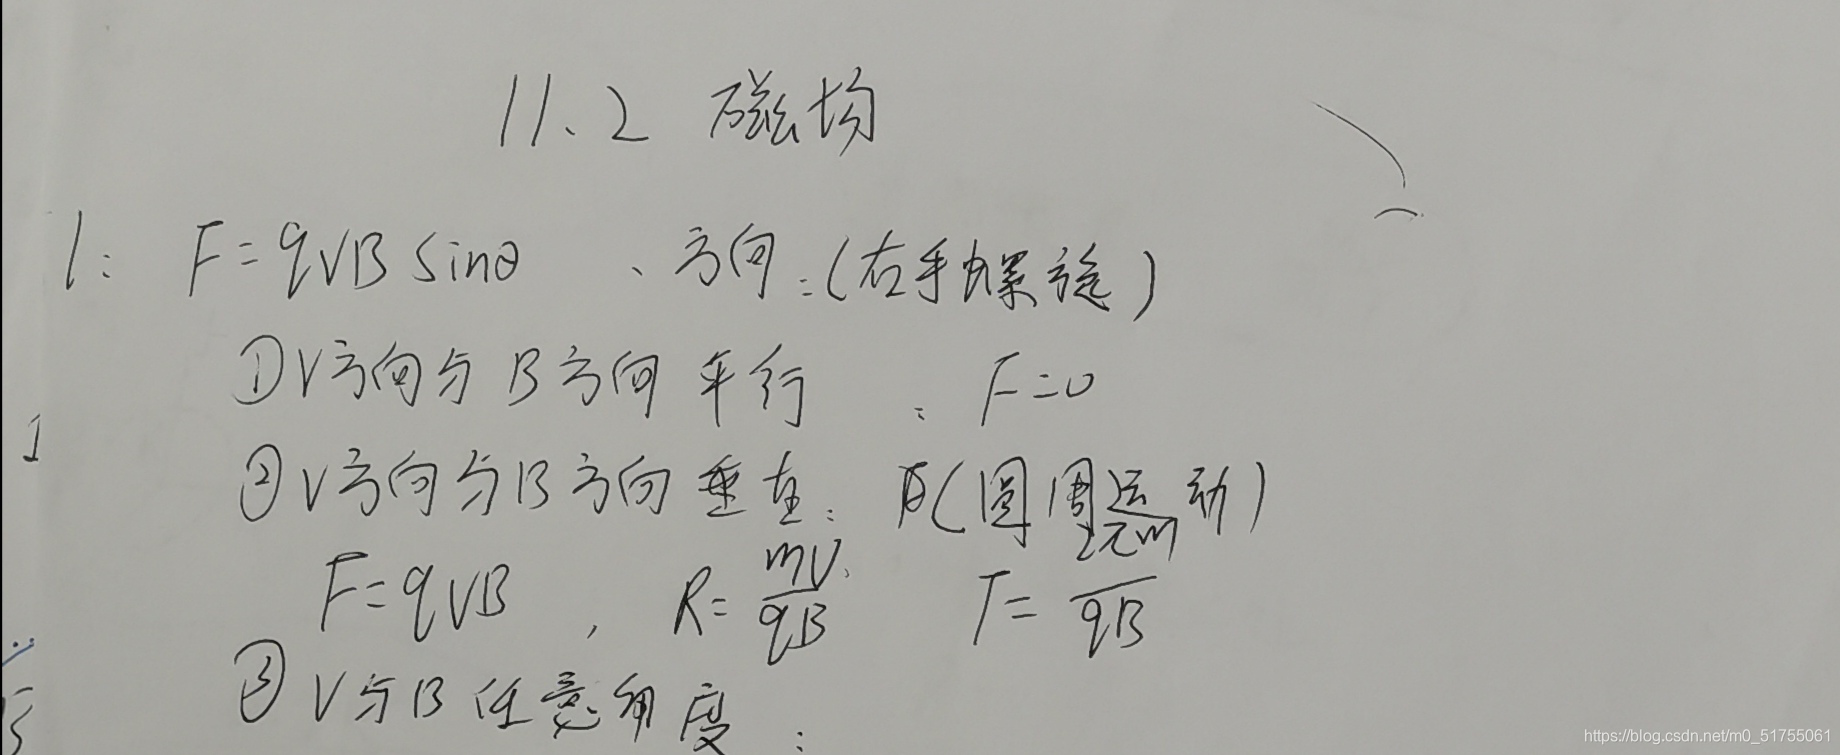 11、2 磁场
1: F=qVBsinθ 、方向:(右手螺旋)
①V方向与B方向平行 : F=0
②V方向与B方向垂直: (圆周运动)
F=qVB , R=mV/qB T=2πm/qB
③V与B任意角度:
https://blog.csdn.net/m0_51755061